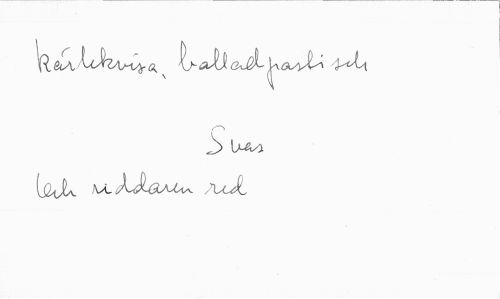 kärlekvisa, balladpastisch
Svar
Och riddaren red